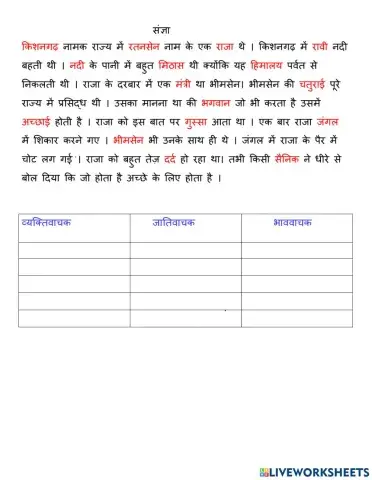 संज्ञा
किशनगढ़ नामक राज्य में रतनसेन नाम के एक राजा थे । किशनगढ़ में रावी नदी
बहती थी । नदी के पानी में बहुत मिठास थी क्योंकि यह हिमालय पर्वत से
निकलती थी । राजा के दरबार में एक मंत्री था भीमसेन। भीमसेन की चतुराई पूरे
राज्य में प्रसिद्ध थी । उसका मानना था की भगवान जो भी करता है उसमें
अच्छाई होती है । राजा को इस बात पर गुस्सा आता था । एक बार राजा जंगल
में शिकार करने गए । भीमसेन भी उनके साथ ही थे । जंगल में राजा के पैर में
चोट लग गई । राजा को बहुत तेज दर्द हो रहा था। तभी किसी सैनिक ने धीरे से
बोल दिया कि जो होता है अच्छे के लिए होता है ।
व्यक्तिवाचक जातिवाचक भाववाचक
LIVEWORKSHEETS